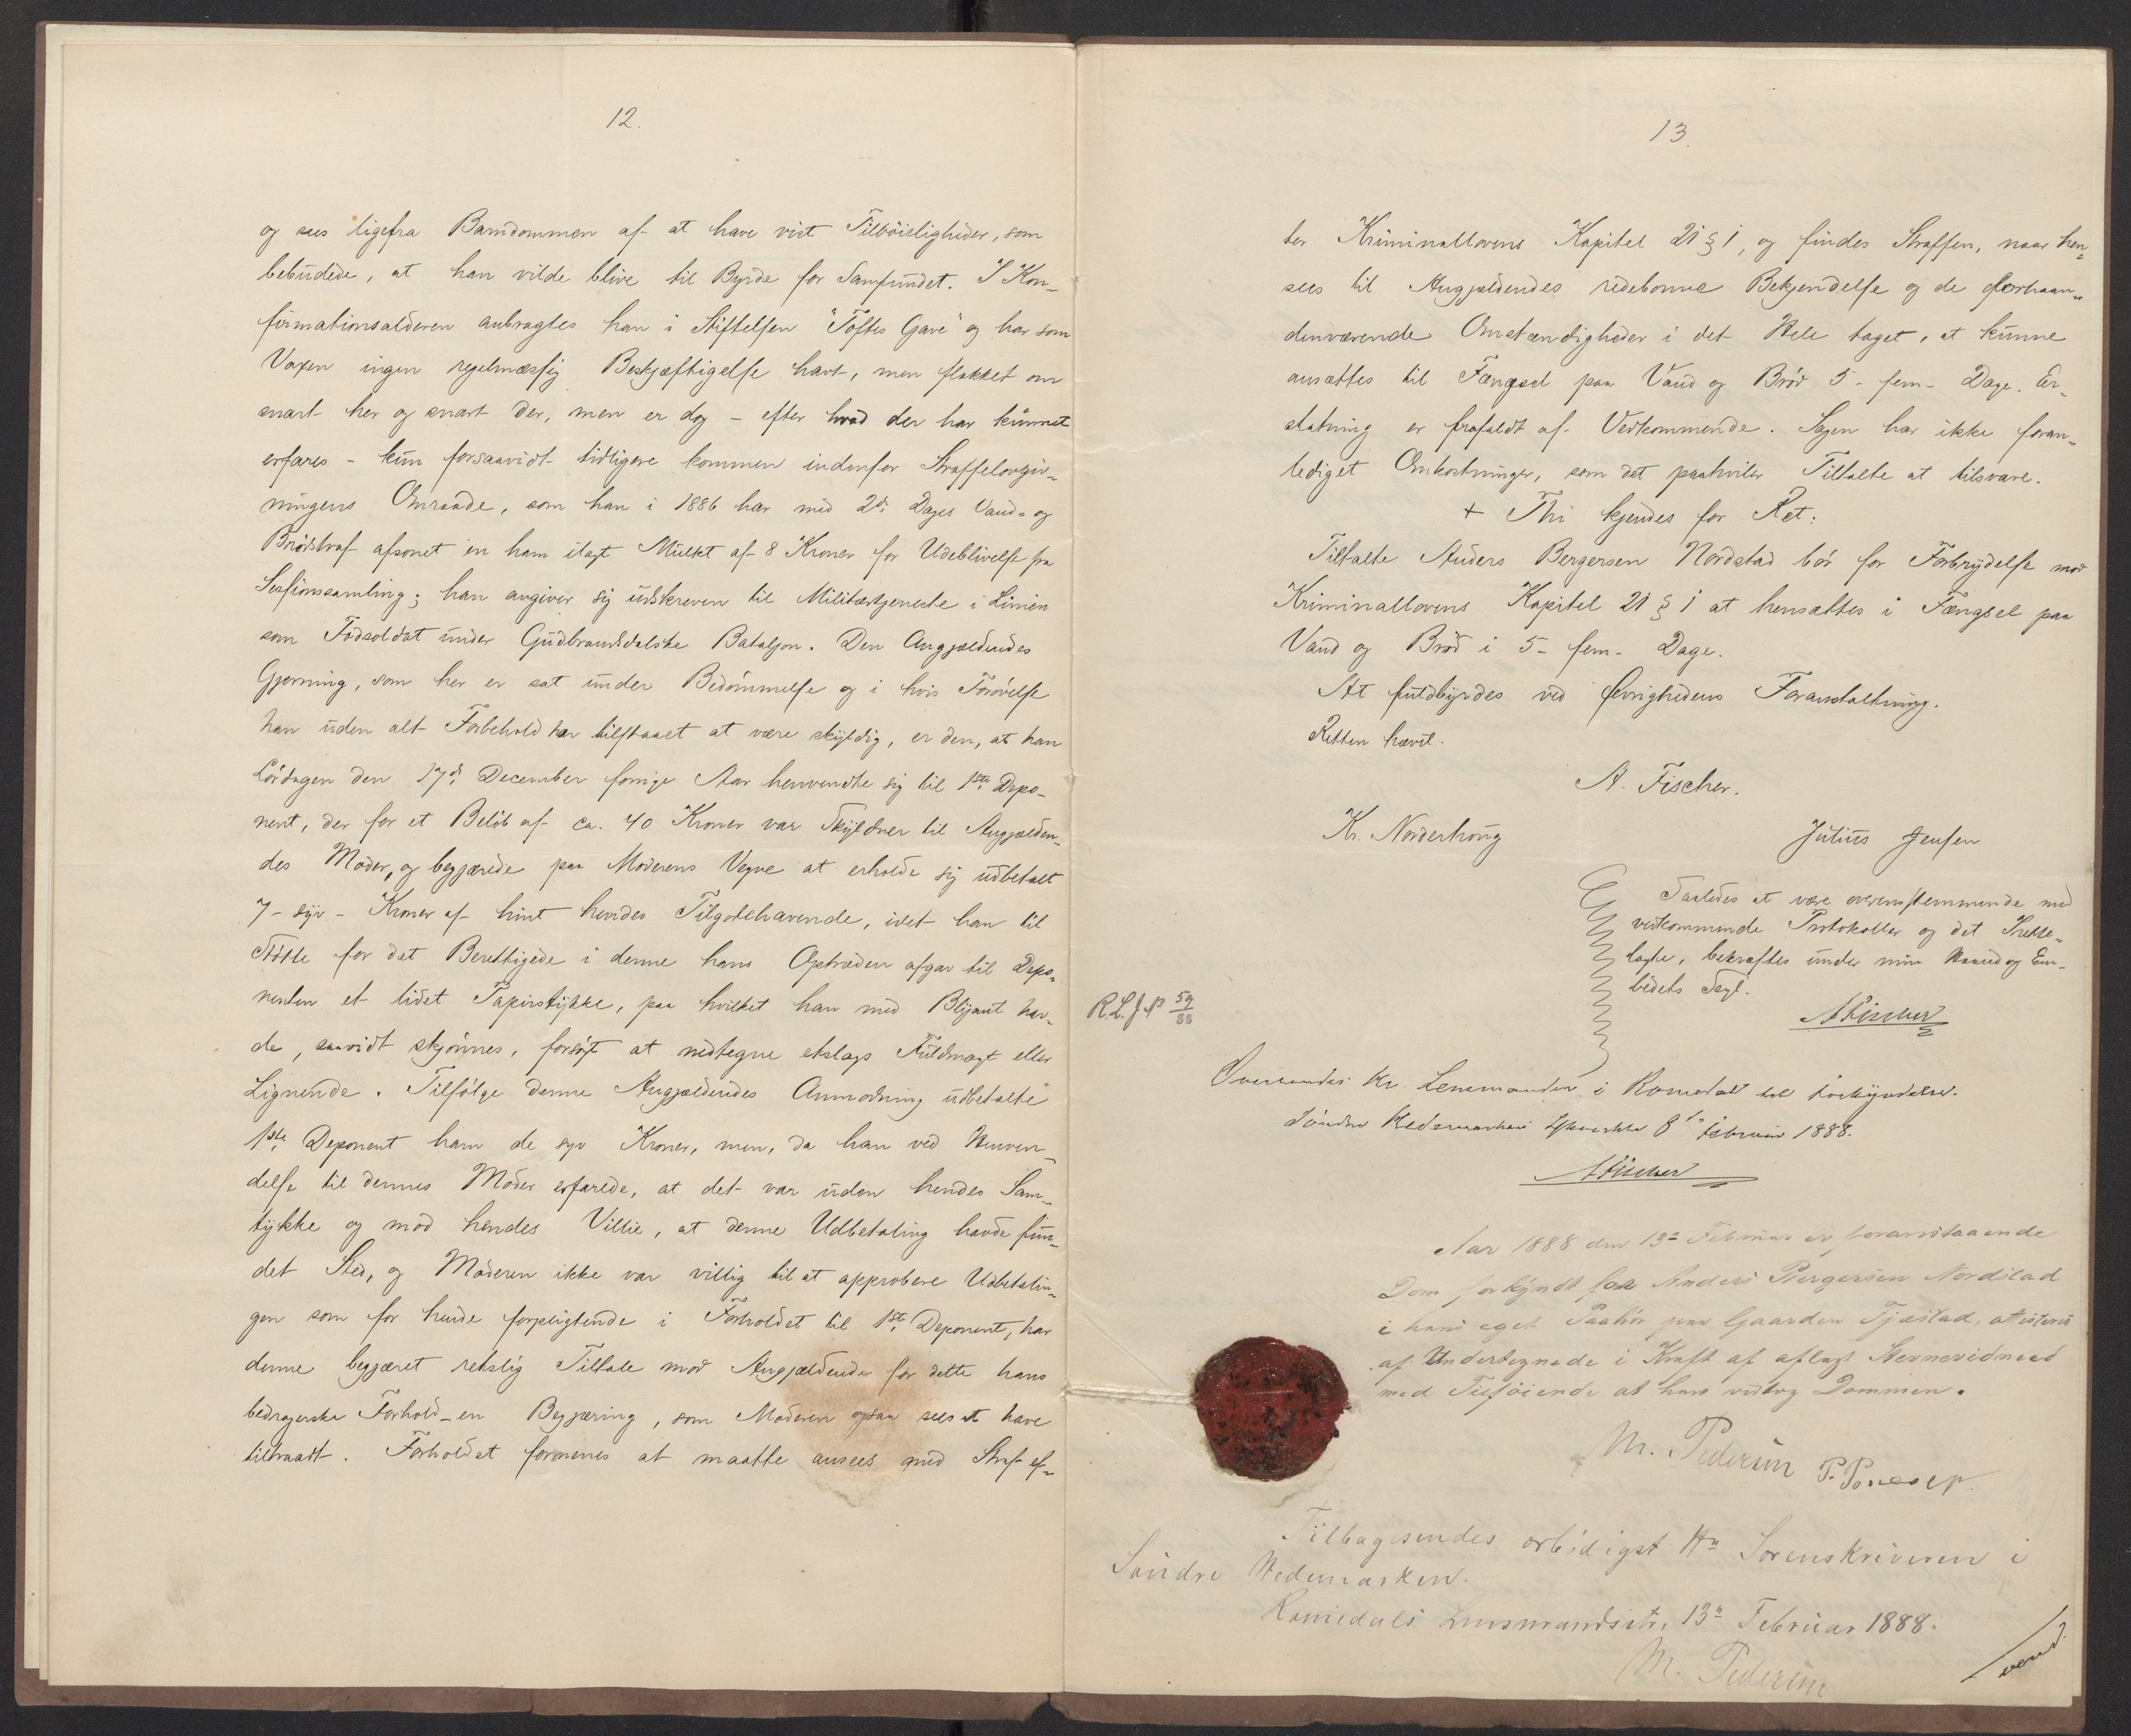 12.
og sees ligefra Barndommen af at have vist Tilbøieligheder, som
bebudede, at han vilde blive til Byrde for Samfundet. I Kon-
firmationsalderen anbragtes han i Stiftelsen "Toftes Gave" og har som
Voxen ingen regelmæssig Beskjæftigelse havt, men flakket om
snart her og snart der, men er dog - efter hvad der har kunnet
erfares - kun forsaavidt tidligere kommen indenfor Straffelovgiv-
ningens Omraade, som han i 1886 har med 2de Dages Vand- og
Brødstraf afsonet en ham ilagt Mulkt af 8 Kroner for Udeblivelse fra
Sessionssamling; han angiver sig udskreven til Militærtjeneste i Linien
som Fodsoldat under Gudbrandsdalske Bataljon. Den Angjældendes
Gjerning, som her er sat under Bedømmelse og i hvis Forøvelse
han uden alt Forbehold har tilstaaet at være skyldig, er den, at han
Lørdagen den 17de December forrige Aar henvendte sig til 1ste Depo-
nent, der for et Beløb af ca. 40 Kroner var Skyldner til Angjælden-
des Moder, og begjærede paa Moderens Vegne at erholde sig udbetalt
7 - syv - Kroner af hint hendes Tilgodehavende, idet han til
Støtte for det Berettigede i denne hans Optræden afgav til Depo-
nenten et lidet Papirstykke, paa hvilket han med Blyant hav-
de, saavidt skjønnes, forsøgt at nedtegne etslags Fuldmagt eller
Lignende. Tilfølge denne Angjældendes Anmodning udbetalte
1ste Deponent ham de syv Kroner, men, da han ved Henven-
delse til dennes Moder erfarede, at det var uden hendes Sam-
tykke og mod hendes Villie, at denne Udbetaling havde fun-
det Sted, og Moderen ikke var villig til at approbere Udbetalin-
gen som for hende forpligtende i Forholdet til 1ste Deponent, har
denne begjæret retslig Tiltale mod Angjældende for dette hans
bedragerske Forhold - en Begjæring, som Moderen ogsaa sees at have
tiltraadt. Forholdet formenes at maatte ansees med Straf ef-
13.
ter Kriminallovens Kapitel 21 § 1, og findes Straffen, naar hen-
sees til Angjældendes redebonne Bekjendelse og de forhaan-
denværende Omstændigheder i det Hele taget, at kunne
ansættes til Fængsel paa Vand og Brød 5 - fem - Dage. Er-
statning er frafaldt af Vedkommende. Sagen har ikke foran-
lediget Omkostninger, som det paahviler Tiltalte at tilsvare.
+ Thi kjendes for Ret:
Tiltalte Anders Bergersen Nordstad bør for Forbrydelse mod
Kriminallovens Kapitel 21 § 1 at hensættes i Fængsel paa
Vand og Brød i 5 - fem - Dage.
At fuldbyrdes ved Øvrighedens Foranstaltning.
Retten hævet.
A. Fischer.
Kr. Norderhoug Julius Jensen
Saaledes at være overensstemmende med
vedkommende Protokoller og det Frem-
lagte, bekræftes under min Haand og Em-
bedets Segl.
AFischer
R.L.J.№ 59/88
Oversendes Hr. Lensmanden i Romedal til Forkyndelse.
Søndre Hedemarken 8de Februar 1888.
AFischer
Aar 1888 den 13de Februar er foranstaaende
Dom forkyndt for Anders Bergersen Nordstad
i hans eget Paahør paa Gaarden Tjæstad, attesteres
af Undertegnede i Kraft af aflagt Stevnevidneed
med Tilføiende at han vedtog Dommen.
M. Pedersen
Tilbagesendes ærbødigst Hr Sorenskriveren i
Søndre Hedemarken.
Romedals Lensmandsstr. 13de Februar 1888.
M. Pedersen
vend